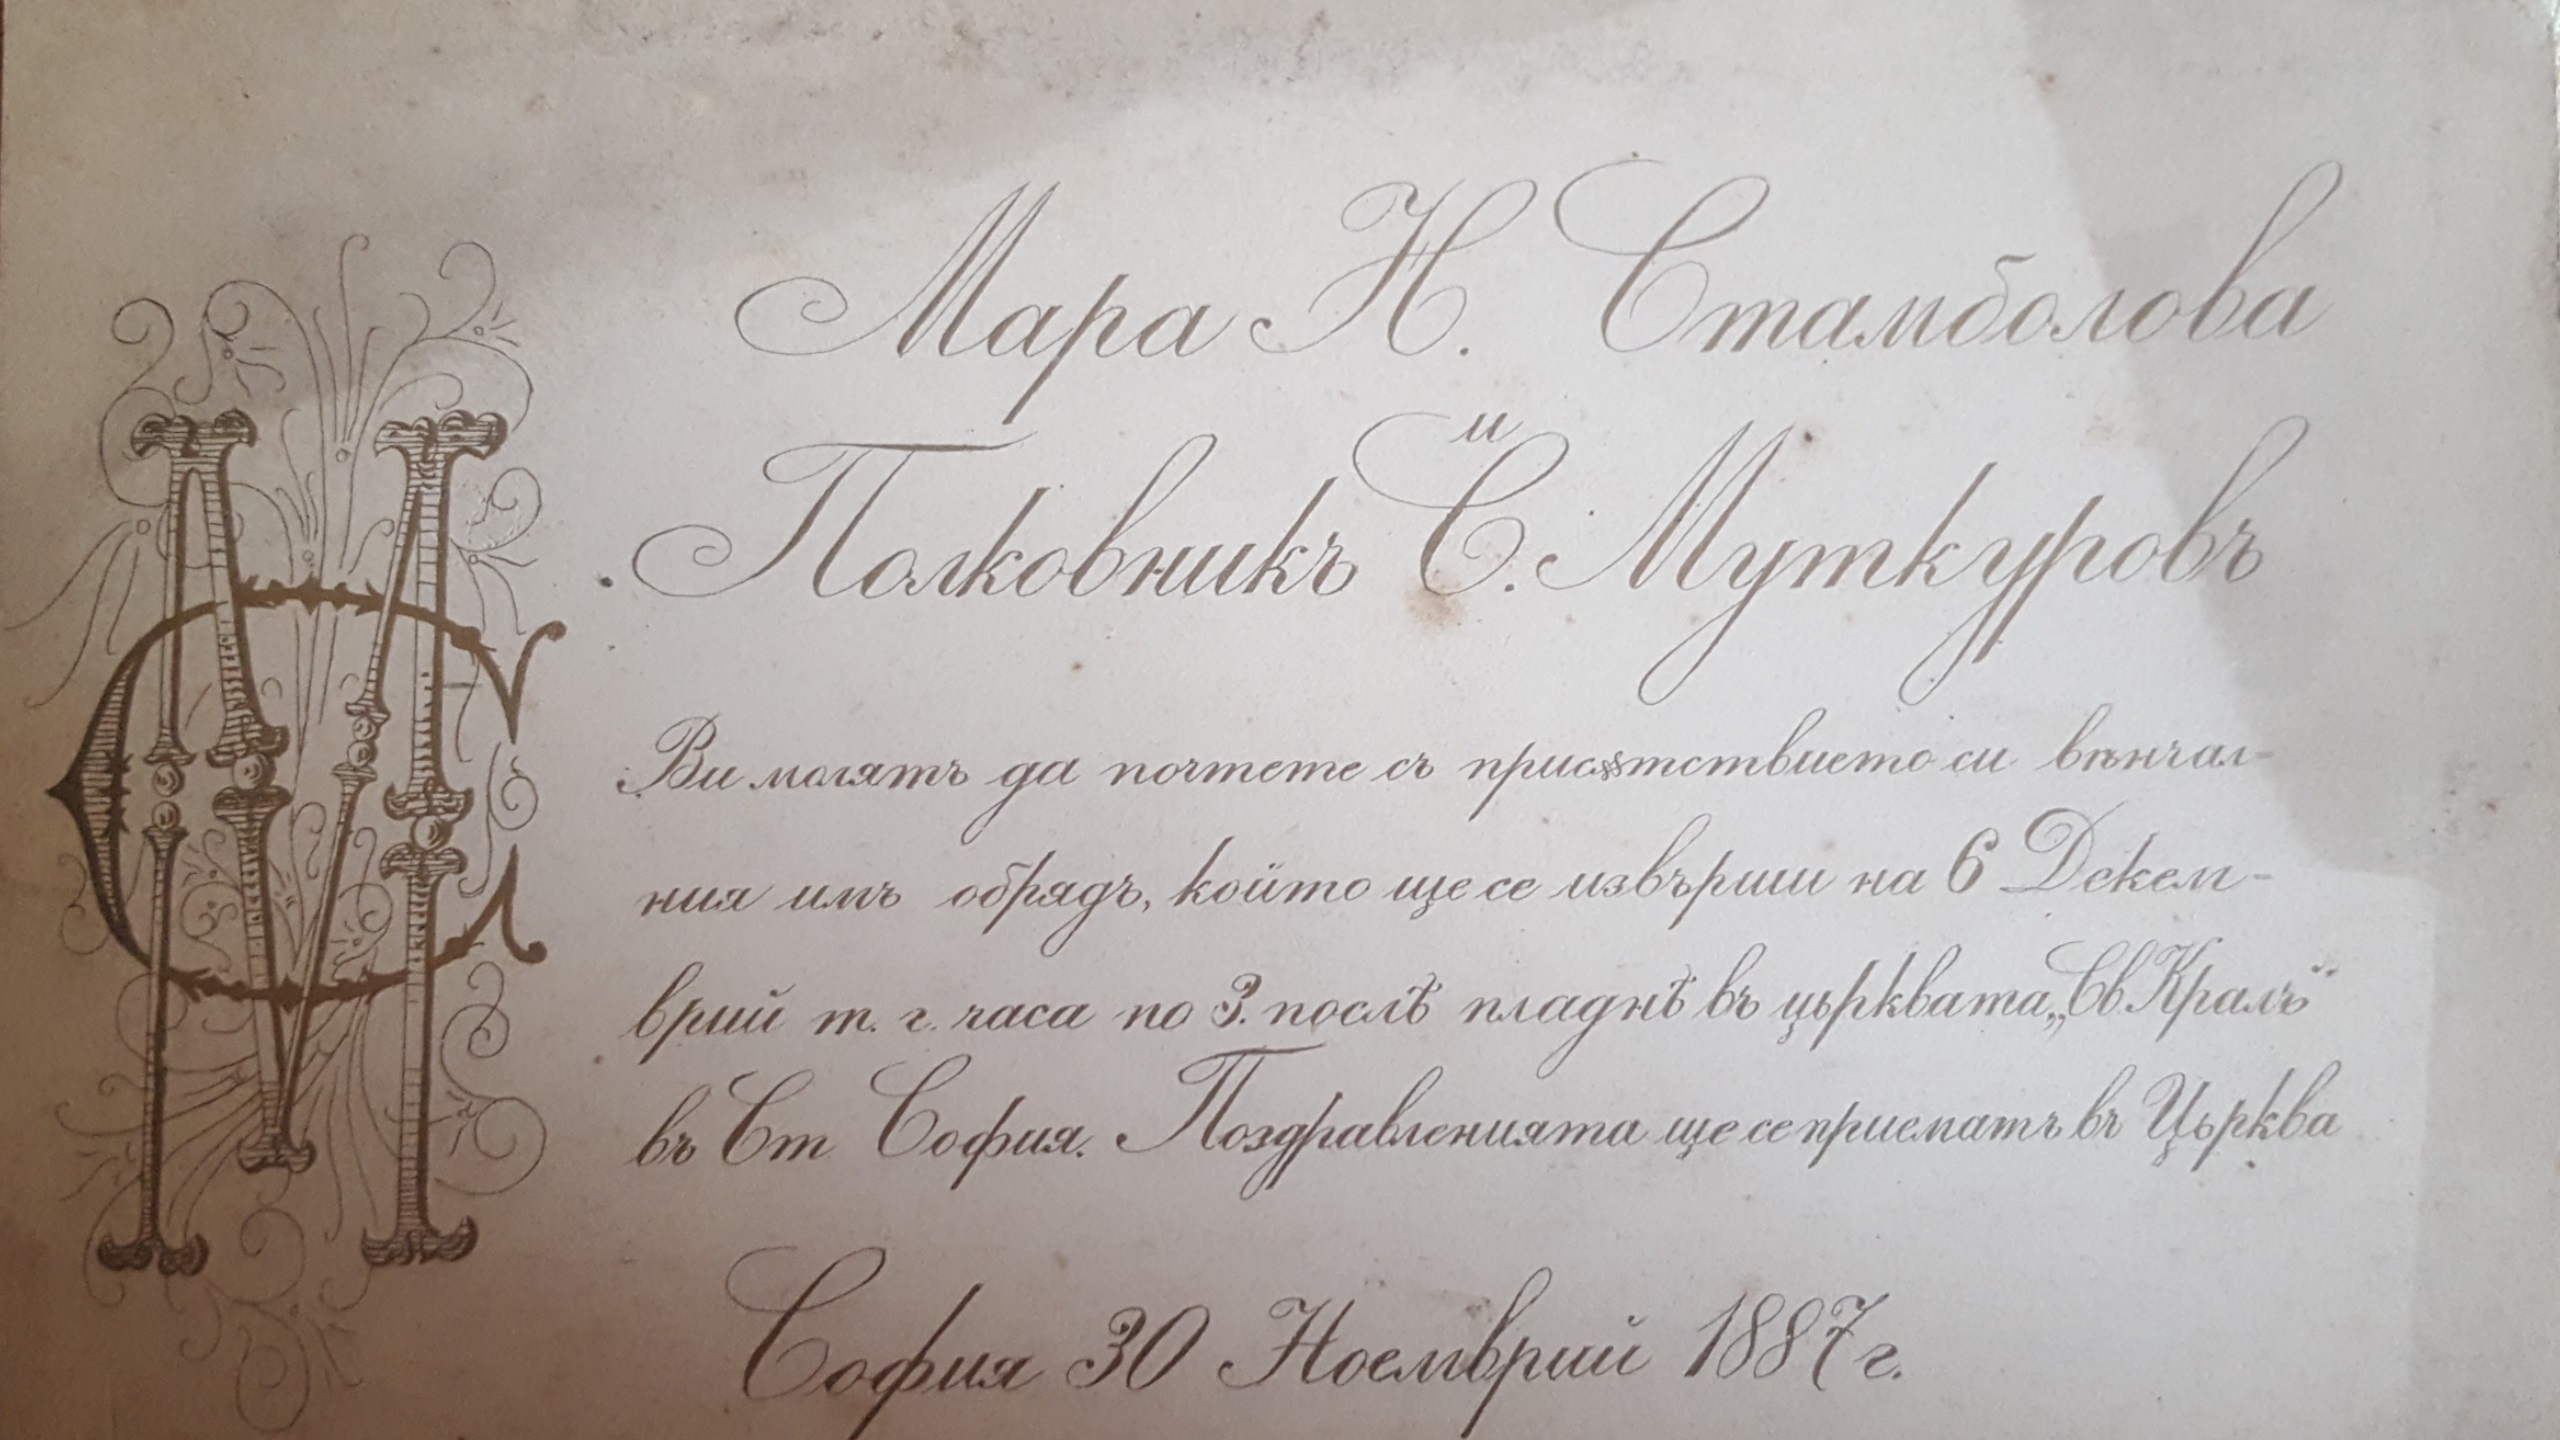 Мара Н. Стамболова
и
Полковникъ С. Муткуровъ
Ви молятъ да почтете съ присѫтствието си вѣнчал-
ния имъ обрядъ, който ще се извърши на 6 Декем-
врий т. г. часа по 3. послѣ пладнѣ въ църквата „Св Кралъ"
въ Ст София. Поздравленията ще се приематъ въ Църква
София 30 Ноемврий 1887 г.